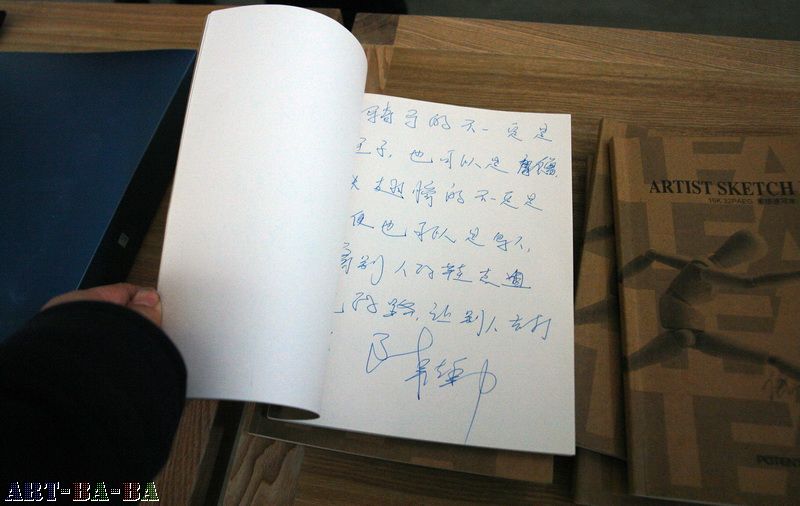 骑马的不一定是
王子,也可以是唐僧.
长翅膀的不一定是
使也可以是鸟人,
穿别人的鞋走自
己的路,让别人去打
ARTIST SKETCH
16K 32PAEG
POTEN
ART-BA-BA